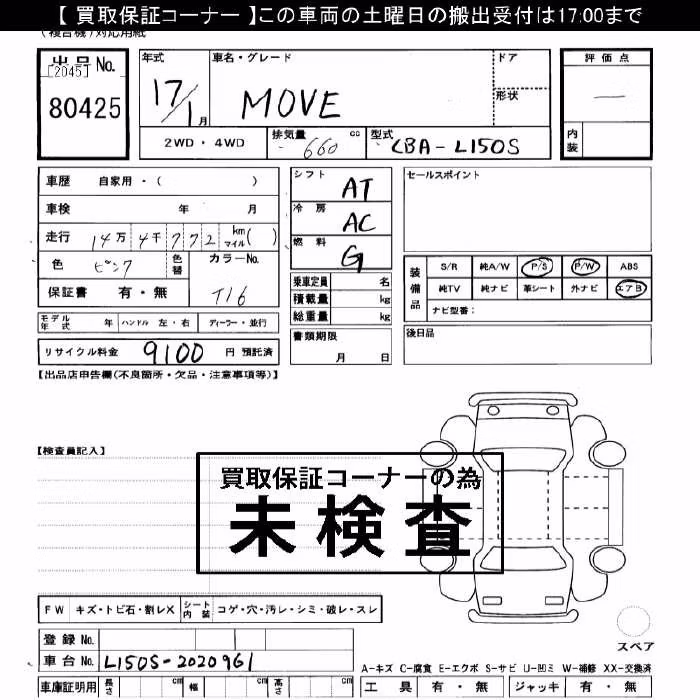 【 買取保証コーナー 】この車両の土曜日の搬出受付は17:00まで
(複合機)対応用紙
出品No.
[2045]
80425
年式
17/1月
車名・グレード
MOVE
ドア
形状
評価点
—
内装
2WD・4WD
排気量 660 cc
型式 CBA-L150S
車歴 自家用・( )
車検 年 月
走行 14万 4千 7 7 2 km マイル ( )
色 ピンク
色替
カラーNo.
T16
保証書 有・無
シフト AT
冷房 AC
燃料 G
乗車定員 名
積載量 kg
総重量 kg
セールスポイント
装備品
S/R 純A/W P/S P/W ABS
純TV 純ナビ 革シート 外ナビ エアB
ナビ型番:
モデル年式 年 ハンドル 左・右 ディーラー・並行
書類期限
月 日
後日品
リサイクル料金 9100 円 預託済
【出品店申告欄(不良箇所・欠品・注意事項等)】
【検査員記入】
買取保証コーナーの為
未検査
FW キズ・トビ石・割レX シート内装 コゲ・穴・汚レ・シミ・破レ・スレ
登録No.
車台No. L150S-2020961
スペア
A-キズ C-腐食 E-エクボ S-サビ U-凹ミ W-補修 XX-交換済
車庫証明用 長さ cm 幅 cm 高さ cm
工具 有・無 ジャッキ 有・無